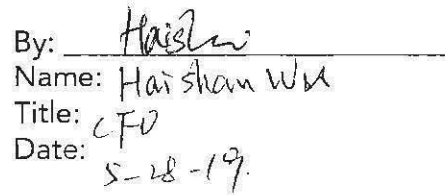 By:
Name: Haishan Wu
Title: CFO
Date: 5-28-19.